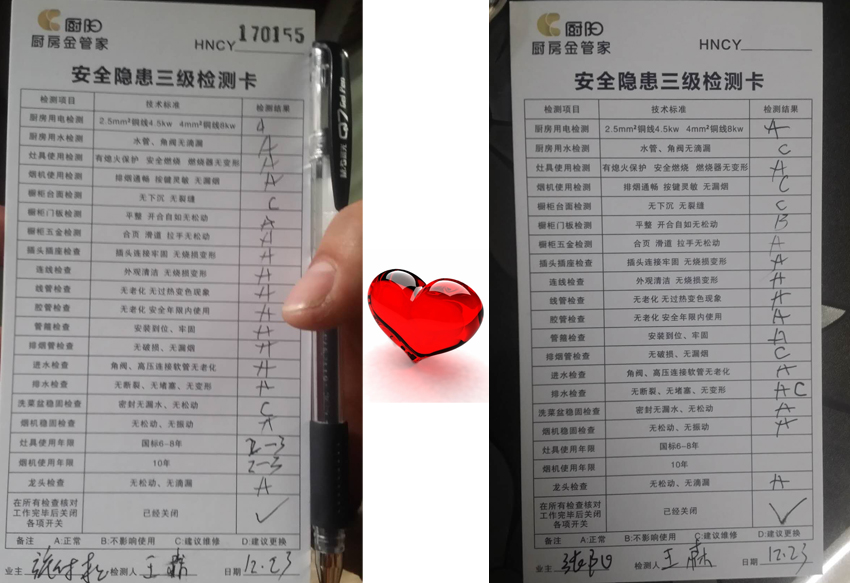 厨阳
厨房金管家
HNCY 170155
安全隐患三级检测卡
检测项目 技术标准 检测结果
厨房用电检测 2.5mm²铜线4.5kw 4mm²铜线8kw A
厨房用水检测 水管、角阀无滴漏 A
灶具使用检测 有熄火保护 安全燃烧 燃烧器无变形 A
烟机使用检测 排烟通畅 按键灵敏 无漏烟 A
橱柜台面检测 无下沉 无裂缝 C
橱柜门板检测 平整 开合自如无松动 A
橱柜五金检测 合页 滑道 拉手无松动 A
插头插座检查 插头连接牢固 无烧损变形 A
连线检查 外观清洁 无烧损变形 A
线管检查 无老化 无过热变色现象 A
胶管检查 无老化 安全年限内使用 A
管箍检查 安装到位、牢固 A
排烟管检查 无破损、无漏烟 A
进水检查 角阀、高压连接软管无老化 A
排水检查 无断裂、无堵塞、无变形 A
洗菜盆稳固检查 密封无漏水、无松动 C
烟机稳固检查 无松动、无振动 A
灶具使用年限 国标6-8年 2-3
烟机使用年限 10年 2-3
龙头检查 无松动、无滴漏 A
在所有检查核对
工作完毕后关闭 已经关闭 ✓
各项开关
备注 A:正常 B:不影响使用 C:建议维修 D:建议更换
业主: 检测人 王 日期 12.23
厨阳
厨房金管家
HNCY
安全隐患三级检测卡
检测项目 技术标准 检测结果
厨房用电检测 2.5mm²铜线4.5kw 4mm²铜线8kw A
厨房用水检测 水管、角阀无滴漏 C
灶具使用检测 有熄火保护 安全燃烧 燃烧器无变形 A
烟机使用检测 排烟通畅 按键灵敏 无漏烟 C
橱柜台面检测 无下沉 无裂缝 C
橱柜门板检测 平整 开合自如无松动 B
橱柜五金检测 合页 滑道 拉手无松动 A
插头插座检查 插头连接牢固 无烧损变形 A
连线检查 外观清洁 无烧损变形 A
线管检查 无老化 无过热变色现象 A
胶管检查 无老化 安全年限内使用 A
管箍检查 安装到位、牢固 A
排烟管检查 无破损、无漏烟 C
进水检查 角阀、高压连接软管无老化 A
排水检查 无断裂、无堵塞、无变形 A C
洗菜盆稳固检查 密封无漏水、无松动 A
烟机稳固检查 无松动、无振动 A
灶具使用年限 国标6-8年
烟机使用年限 10年
龙头检查 无松动、无滴漏 A
在所有检查核对
工作完毕后关闭 已经关闭 ✓
各项开关
备注 A:正常 B:不影响使用 C:建议维修 D:建议更换
业主: 检测人 王 日期 12.23